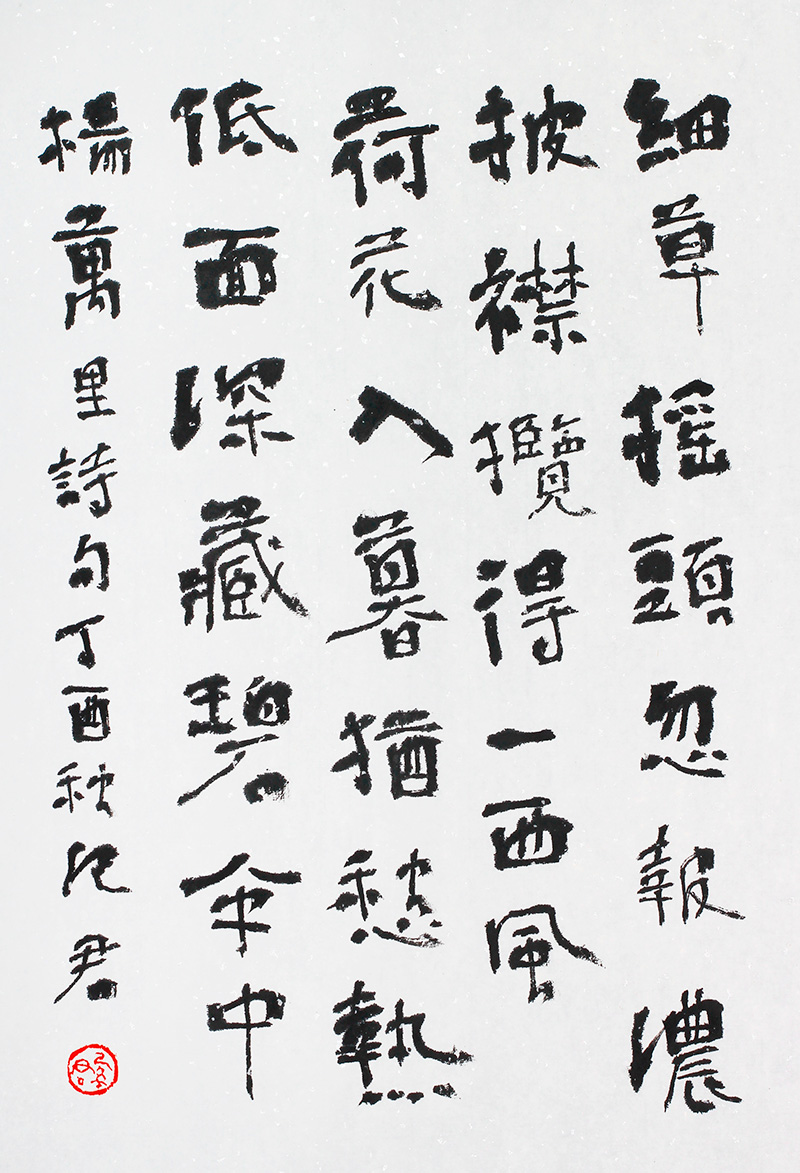 細草摇頭忽報濃
披襟攬得一西風
荷花入暮猶愁熱
低面深藏碧伞中
楊萬里詩句丁酉秋君